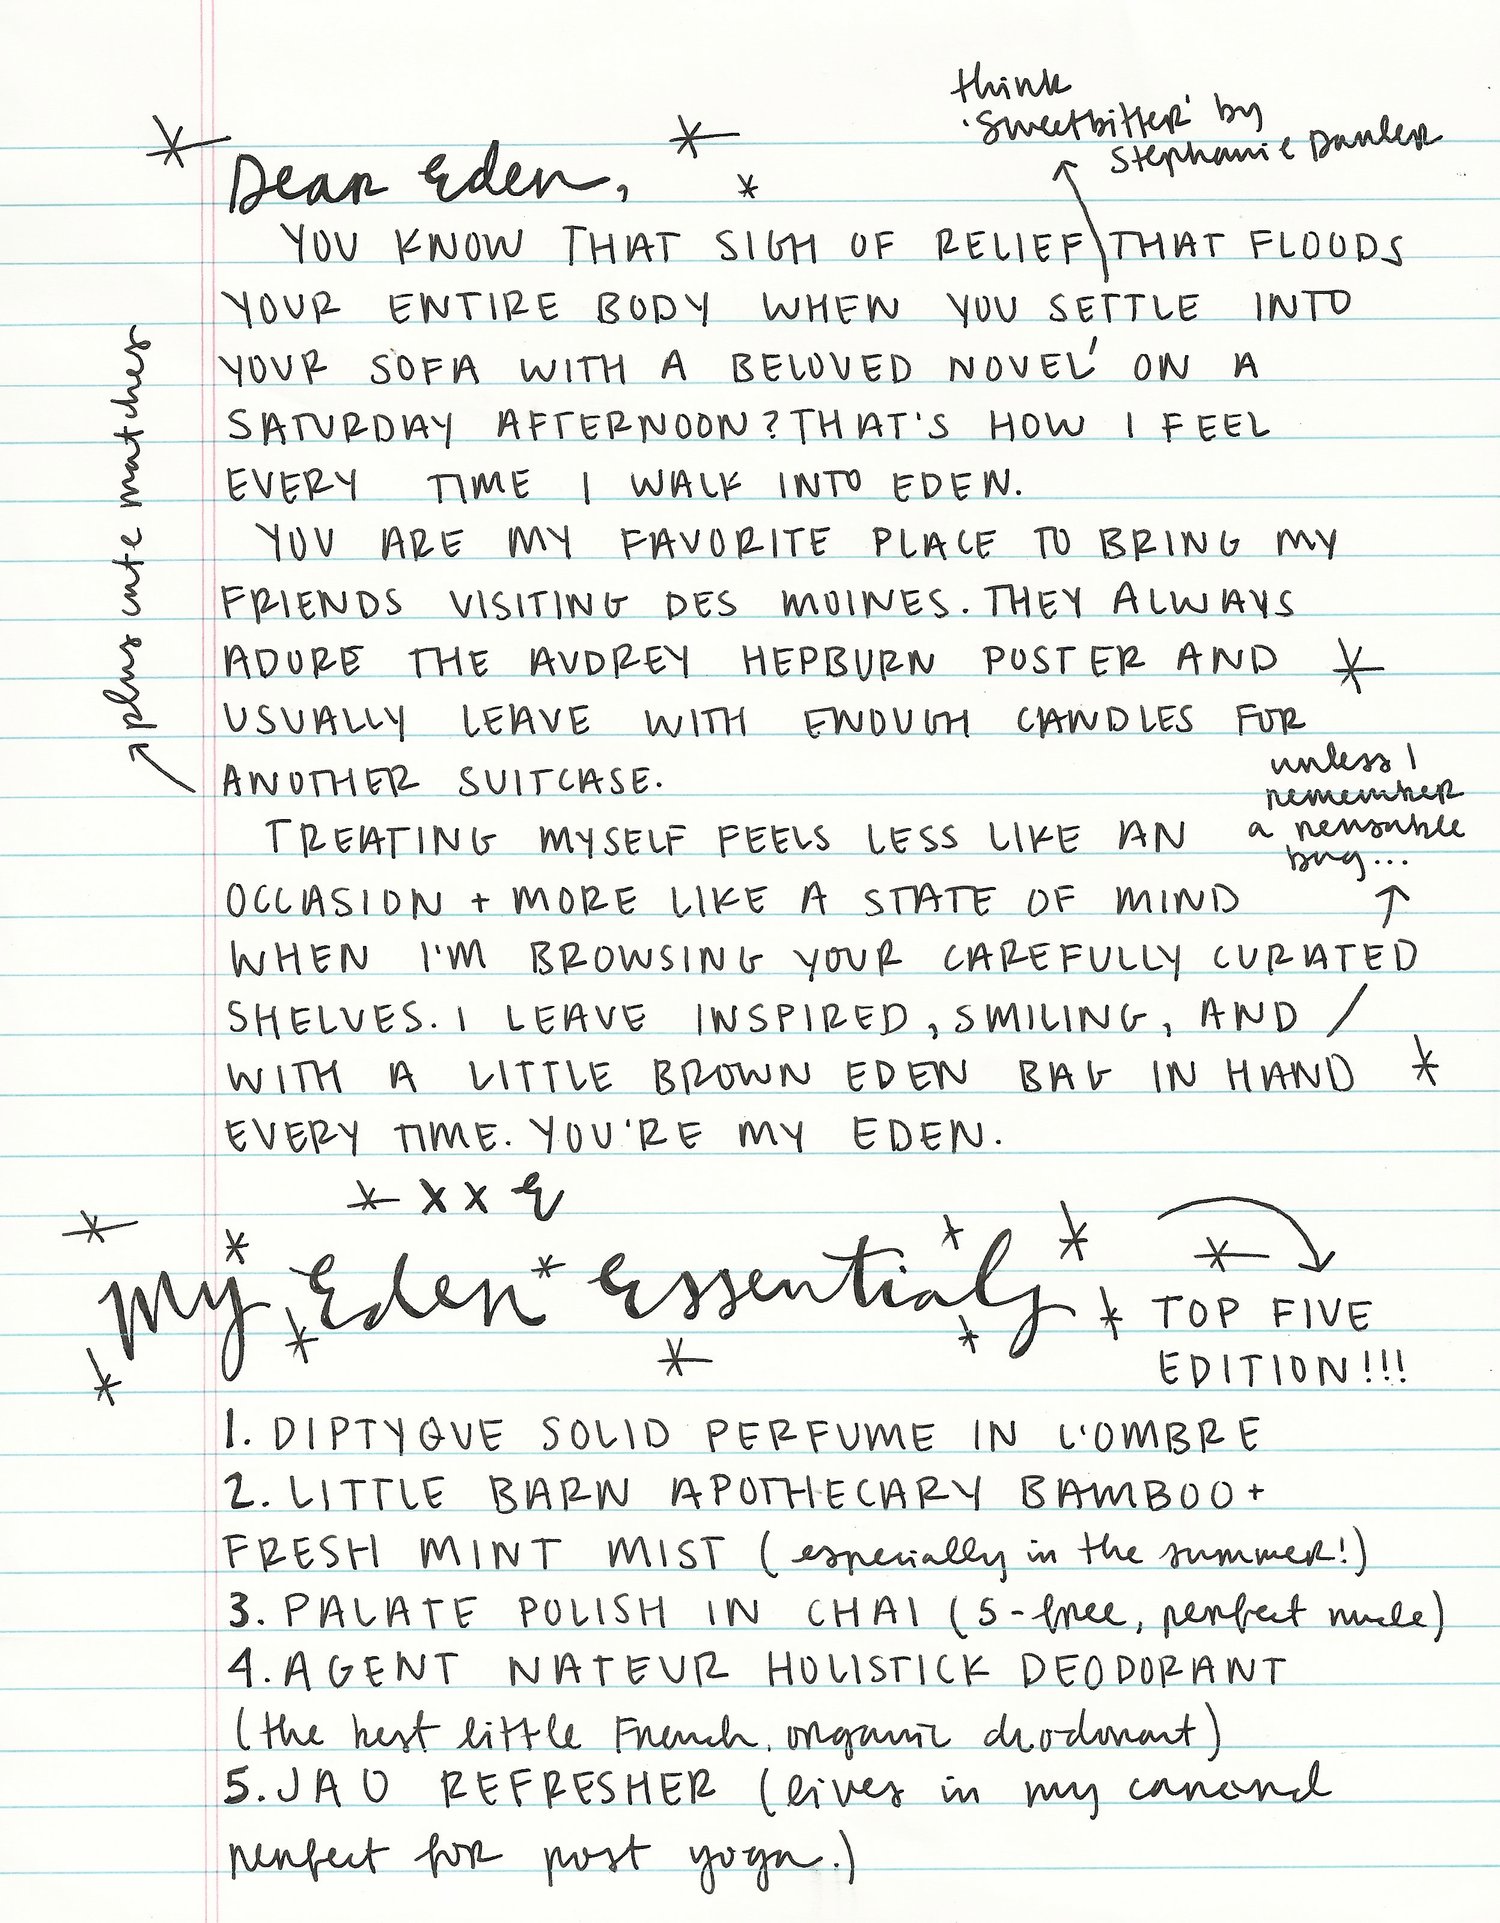 think
'Sweetbitter' by
Stephanie Danler
Dear Eden,
YOU KNOW THAT SIGH OF RELIEF THAT FLOODS
YOUR ENTIRE BODY WHEN YOU SETTLE INTO
YOUR SOFA WITH A BELOVED NOVEL' ON A
SATURDAY AFTERNOON? THAT'S HOW I FEEL
EVERY TIME I WALK INTO EDEN.
YOU ARE MY FAVORITE PLACE TO BRING MY
FRIENDS VISITING DES MOINES. THEY ALWAYS
ADORE THE AUDREY HEPBURN POSTER AND
USUALLY LEAVE WITH ENOUGH CANDLES FOR
ANOTHER SUITCASE.
plus cute matches
TREATING MYSELF FEELS LESS LIKE AN
OCCASION + MORE LIKE A STATE OF MIND
WHEN I'M BROWSING YOUR CAREFULLY CURATED
SHELVES. I LEAVE INSPIRED, SMILING, AND
WITH A LITTLE BROWN EDEN BAG IN HAND
EVERY TIME. YOU'RE MY EDEN.
unless I
remember
a reusable
bag...
x x E
My Eden Essentials
TOP FIVE
EDITION!!!
1. DIPTYQUE SOLID PERFUME IN L'OMBRE
2. LITTLE BARN APOTHECARY BAMBOO +
FRESH MINT MIST (especially in the summer!)
3. PALATE POLISH IN CHAI (5-free, perfect nude)
4. AGENT NATEUR HOLISTICK DEODORANT
(the best little French, organic deodorant)
5. JAO REFRESHER (lives in my car and
perfect for post yoga.)